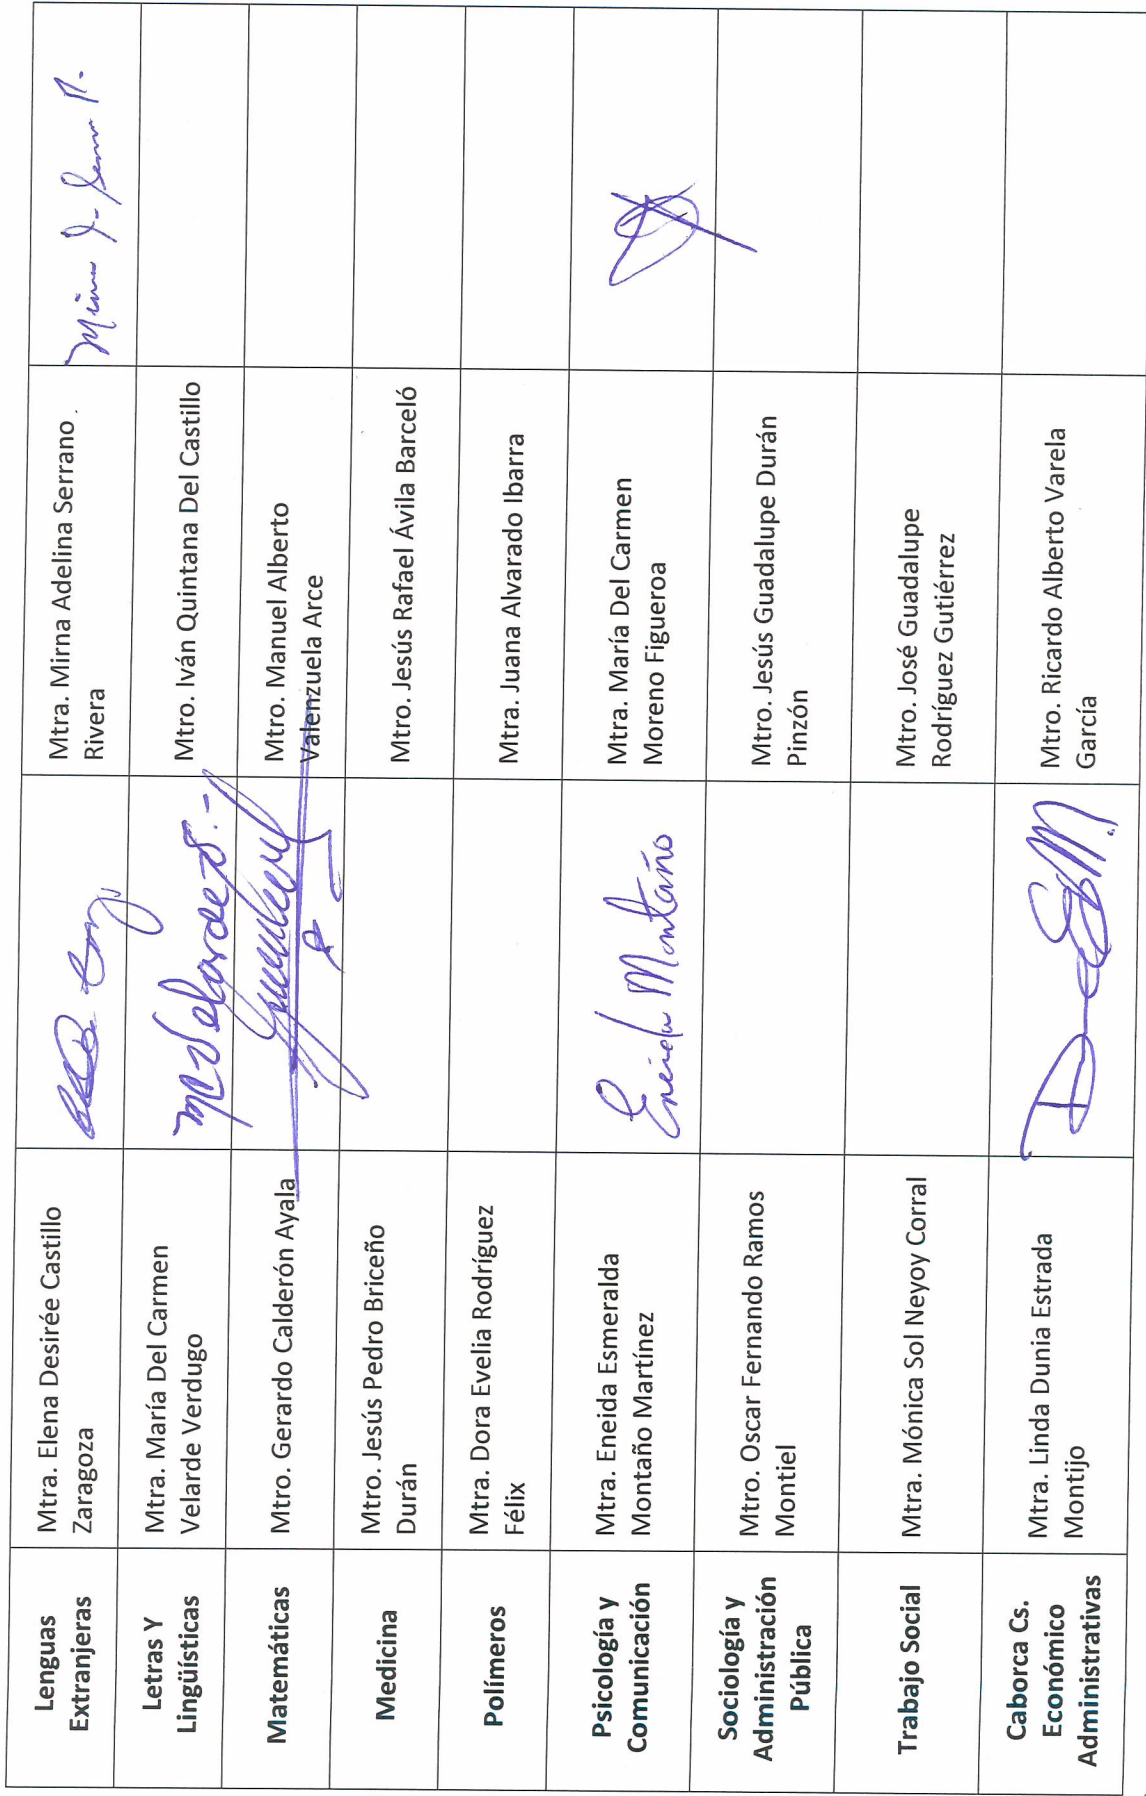 Lenguas
Extranjeras
Mtra. Elena Desirée Castillo
Zaragoza
Mtra. Mirna Adelina Serrano
Rivera
Letras Y
Lingüísticas
Mtra. María Del Carmen
Velarde Verdugo
M Velarde
Mtro. Iván Quintana Del Castillo
Matemáticas
Mtro. Gerardo Calderón Ayala
Mtro. Manuel Alberto
Valenzuela Arce
Medicina
Mtro. Jesús Pedro Briceño
Durán
Mtro. Jesús Rafael Ávila Barceló
Polímeros
Mtra. Dora Evelia Rodríguez
Félix
Mtra. Juana Alvarado Ibarra
Psicología y
Comunicación
Mtra. Eneida Esmeralda
Montaño Martínez
Eneida Montaño
Mtra. María Del Carmen
Moreno Figueroa
Sociología y
Administración
Pública
Mtro. Oscar Fernando Ramos
Montiel
Mtro. Jesús Guadalupe Durán
Pinzón
Trabajo Social
Mtra. Mónica Sol Neyoy Corral
Mtro. José Guadalupe
Rodríguez Gutiérrez
Caborca Cs.
Económico
Administrativas
Mtra. Linda Dunia Estrada
Montijo
Mtro. Ricardo Alberto Varela
García